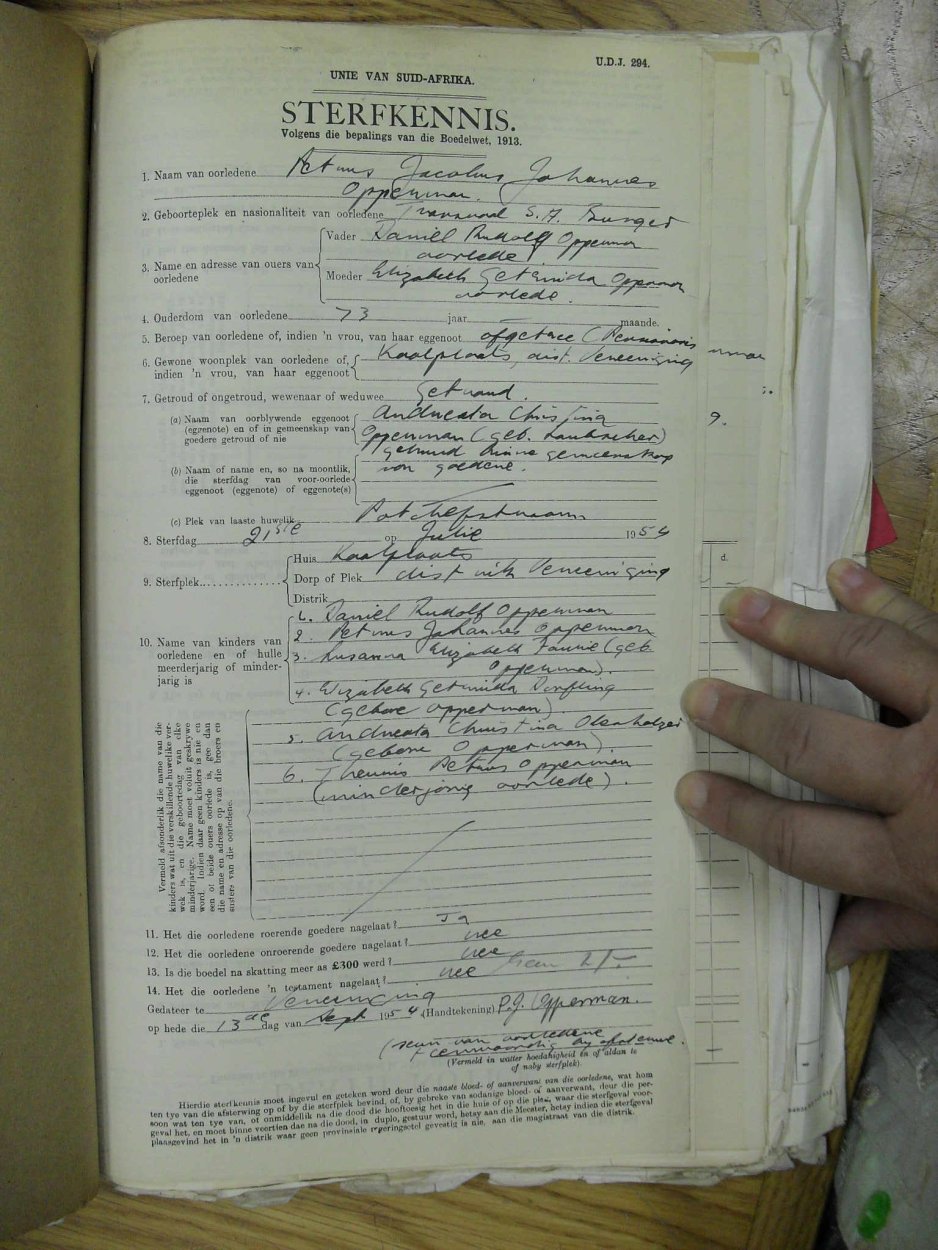 U.D.J. 294.
UNIE VAN SUID-AFRIKA.
STERFKENNIS.
Volgens die bepalings van die Boedelwet, 1913.
1. Naam van oorledene Petrus Jacobus Johannes
Opperman.
2. Geboorteplek en nasionaliteit van oorledene Transvaal S.A. Burger
3. Name en adresse van ouers van oorledene
Vader Daniël Rudolf Opperman
oorlede
Moeder Elizabeth Gertruida Opperman
oorlede.
4. Ouderdom van oorledene 73 jaar — maande.
5. Beroep van oorledene of, indien 'n vrou, van haar eggenoot afgetree (Pensionaris
6. Gewone woonplek van oorledene of, indien 'n vrou, van haar eggenoot Kaalplaats, dist. Vereeniging
7. Getroud of ongetroud, wewenaar of weduwee Getroud.
(a) Naam van oorblywende eggenoot (eggenote) en of in gemeenskap van goedere getroud of nie
Christina
Opperman (geb. Laubscher)
getroud binne gemeenskap
van goedere.
(b) Naam of name en, so na moontlik, die sterfdag van voor-oorlede eggenoot (eggenote) of eggenote(s)
(c) Plek van laaste huwelik Potchefstroom
8. Sterfdag 21ste op Julie 1954
9. Sterfplek
Huis Kaalplaats
Dorp of Plek distrik Vereeniging
Distrik
10. Name van kinders van oorledene en of hulle meerderjarig of minderjarig is
1. Daniël Rudolf Opperman
2. Petrus Johannes Opperman
3. Susanna Elizabeth Fourie (geb.
Opperman).
4. Elizabeth Gertruida Dorfling
(gebore Opperman).
5. Christina
(gebore Opperman).
6. Theunis Petrus Opperman
(minderjarig oorlede).
Vermeld afsonderlik die name van die kinders wat uit die verskillende huwelike verwek is, en die geboortedag van elke minderjarige. Name moet voluit geskrywe word. Indien daar geen kinders is nie en een of beide ouers oorlede is, gee dan die name en adresse op van die broers en susters van die oorledene.
11. Het die oorledene roerende goedere nagelaat? Ja
12. Het die oorledene onroerende goedere nagelaat? nee
13. Is die boedel na skatting meer as £300 werd? nee
14. Het die oorledene 'n testament nagelaat? nee
Gedateer te Vereeniging
op hede die 13de dag van Sept 1954. (Handtekening) P.J. Opperman.
(seun van oorledene
+ teenwoordig by afsterwe.
(Vermeld in watter hoedanigheid en of aldan te
of naby sterfplek).
Hierdie sterfkennis moet ingevul en geteken word deur die naaste bloed- of aanverwant van die oorledene, wat hom
ten tye van die afsterwing op of by die sterfplek bevind, of, by gebreke van sodanige bloed- of aanverwant, deur die persoon
wat ten tye van, of onmiddellik na die dood die hooftoesig het in die huis of op die plek, waar die sterfgeval voorgeval
het, en moet binne veertien dae na die dood, in duplo, gestuur word, hetsy aan die Meester, hetsy indien die sterfgeval
plaasgevind het in 'n distrik waar geen provinsiale regeringsetel gevestig is nie, aan die magistraat van die distrik.
9.
d.